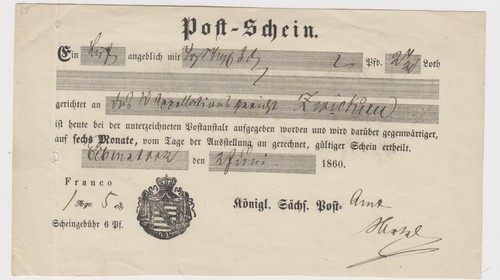 Post-Schein.
Ein Brief angeblich mit Pfd. Loth
gerichtet an das K Appellationsgericht Zwickau
ist heute bei der unterzeichneten Postanstalt aufgegeben worden und wird darüber gegenwärtiger,
auf sechs Monate, vom Tage der Ausstellung an gerechnet, gültiger Schein ertheilt.
den 2 Juni 1860.
Franco
1 Ngr. 5
Königl. Sächs. Post- Amt
Scheingebühr 6 Pf.